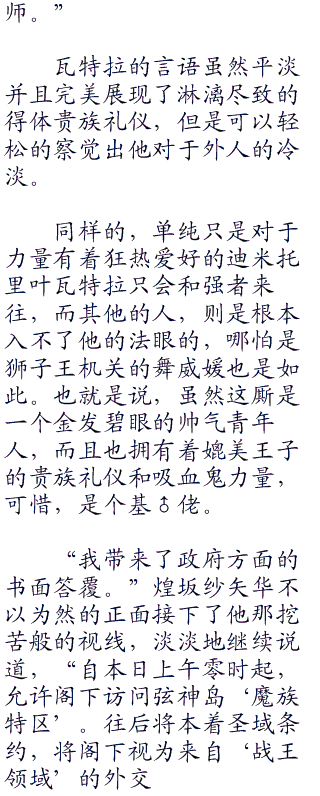 师。”
瓦特拉的言语虽然平淡
并且完美展现了淋漓尽致的
得体贵族礼仪，但是可以轻
松的察觉出他对于外人的冷
淡。
同样的，单纯只是对于
力量有着狂热爱好的迪米托
里叶瓦特拉只会和强者来
往，而其他的人，则是根本
入不了他的法眼的，哪怕是
狮子王机关的舞威媛也是如
此。也就是说，虽然这厮是
一个金发碧眼的帅气青年
人，而且也拥有着媲美王子
的贵族礼仪和吸血鬼力量，
可惜，是个基♂佬。
“我带来了政府方面的
书面答覆。”煌坂纱矢华不
以为然的正面接下了他那挖
苦般的视线，淡淡地继续说
道，“自本日上午零时起，
允许阁下访问弦神岛‘魔族
特区’。往后将本着圣域条
约，将阁下视为来自‘战王
领域’的外交